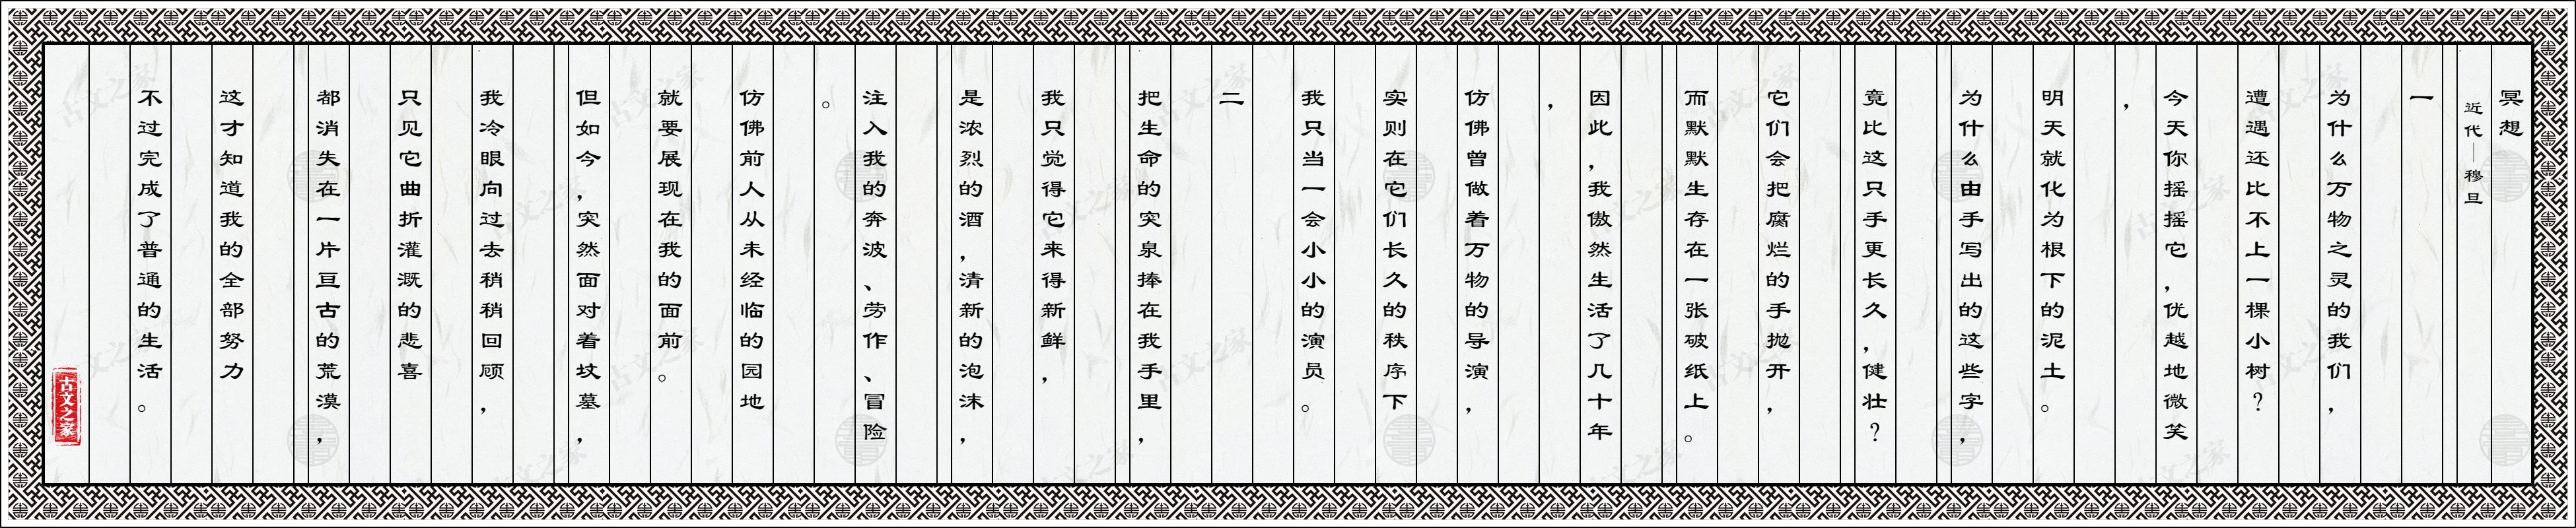 冥想
近代—穆旦
一
为什么万物之灵的我们，
遭遇还比不上一棵小树？
今天你摇摇它，优越地微笑
，
明天就化为根下的泥土。
为什么由手写出的这些字，
竟比这只手更长久，健壮？
它们会把腐烂的手抛开，
而默默生存在一张破纸上。
因此，我傲然生活了几十年
，
仿佛曾做着万物的导演，
实则在它们长久的秩序下
我只当一会小小的演员。
二
把生命的突泉捧在我手里，
我只觉得它来得新鲜，
是浓烈的酒，清新的泡沫，
注入我的奔波、劳作、冒险
。
仿佛前人从未经临的园地
就要展现在我的面前。
但如今，突然面对着坟墓，
我冷眼向过去稍稍回顾，
只见它曲折灌溉的悲喜
都消失在一片亘古的荒漠，
这才知道我的全部努力
不过完成了普通的生活。
古文之家